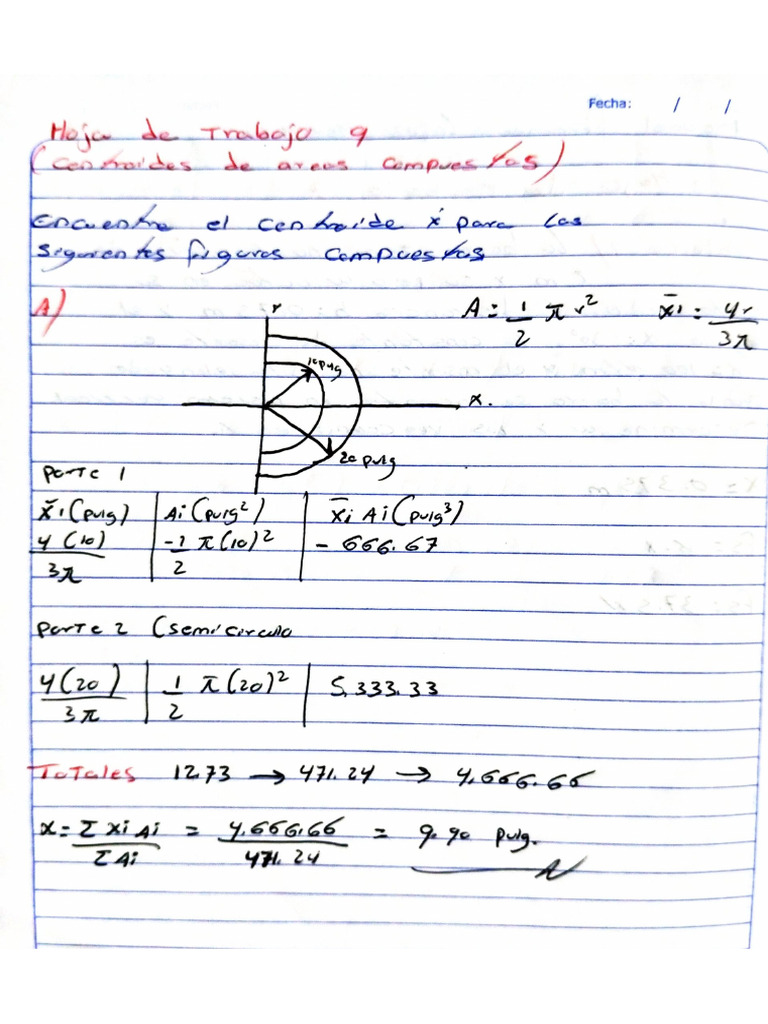 Fecha: / /
Hoja de Trabajo 9
(Centroides de areas compuestas)
Encuentre el centroide x̄ para las
siguientes figuras compuestas
A) Y A = 1/2 π r² x̄i = 4r/3π
10 pulg
x.
20 pulg
Parte 1
x̄i (pulg) | Ai (pulg²) | x̄i Ai (pulg³)
4(10)/3π | -1/2 π(10)² | - 666.67
Parte 2 (semicirculo
4(20)/3π | 1/2 π(20)² | 5,333.33
Totales 12.73 → 471.24 → 4,666.66
x = Σ xi Ai / Σ Ai = 4,666.66 / 471.24 = 9.90 pulg.